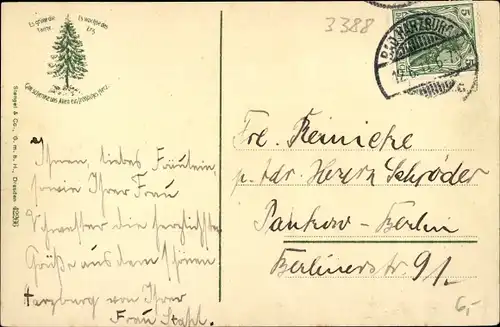 3388
Es grüne die Tanne,
Es wachse das Erz,
Gott schenke uns Allen ein fröhliches Herz.
5
5
BAD HARZBURG
c.
Stengel & Co., G. m. b. H., Dresden
Ihnen, liebes Fräulein,
sowie Ihrer Frau
Schwester die herzlichsten
Grüße aus dem schönen
Harzburg von Ihrer
Frau Stahl.
Frl. Reinicke
p. Adr. Herrn Schröder
Pankow-Berlin
Berlinerstr. 91
6,-